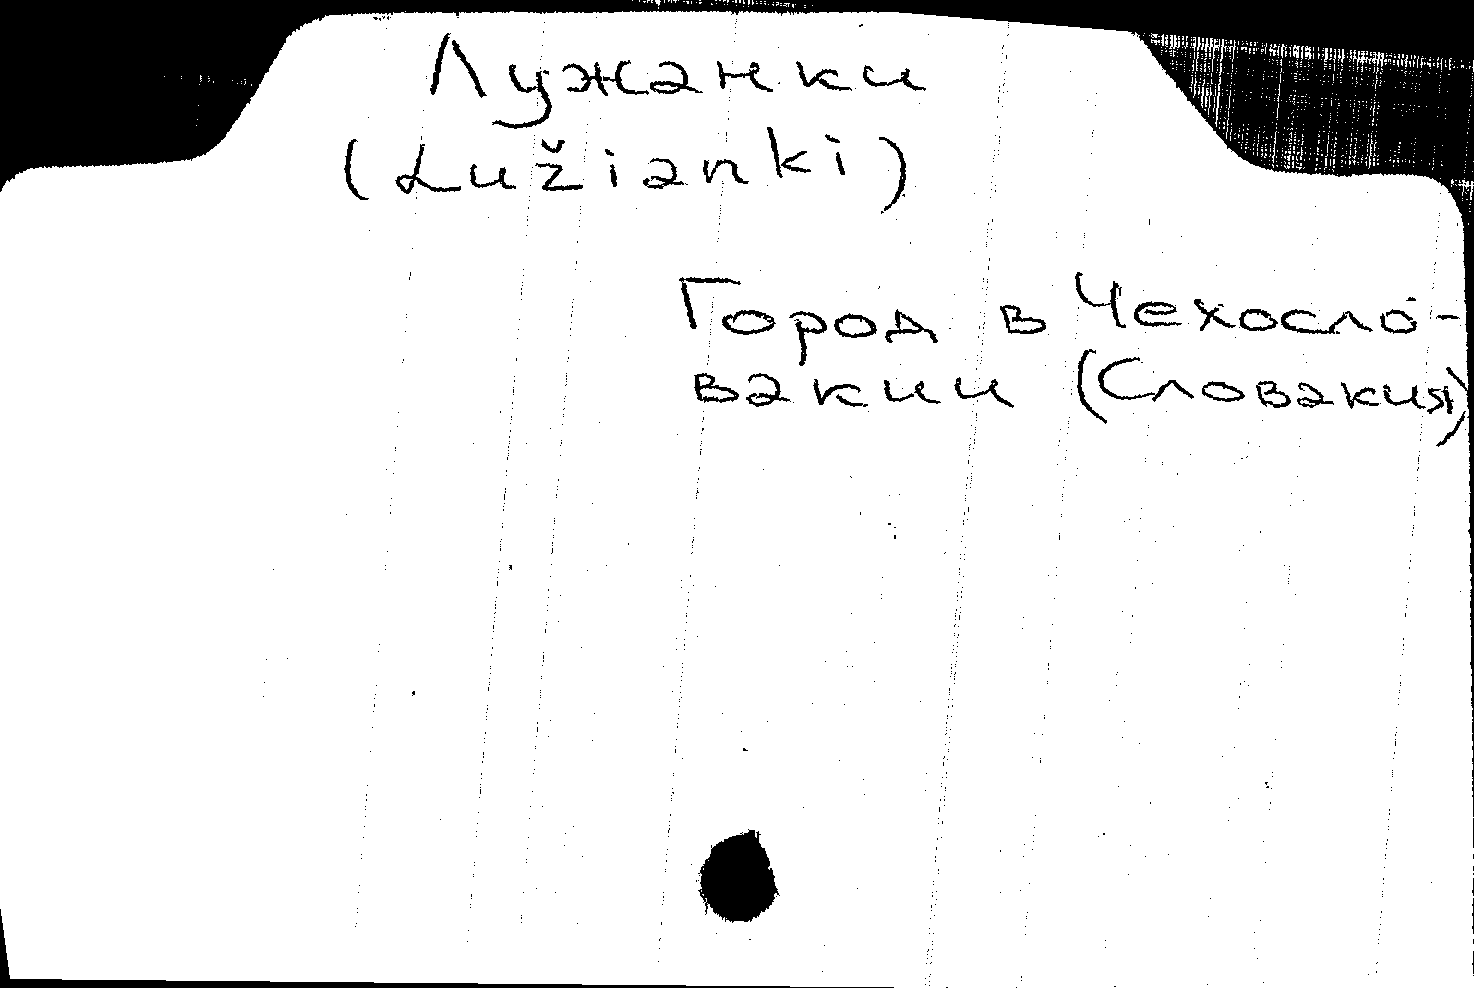 Лужанки
(Lužianki)
Город в Чехосло-
вакии (Словакия)